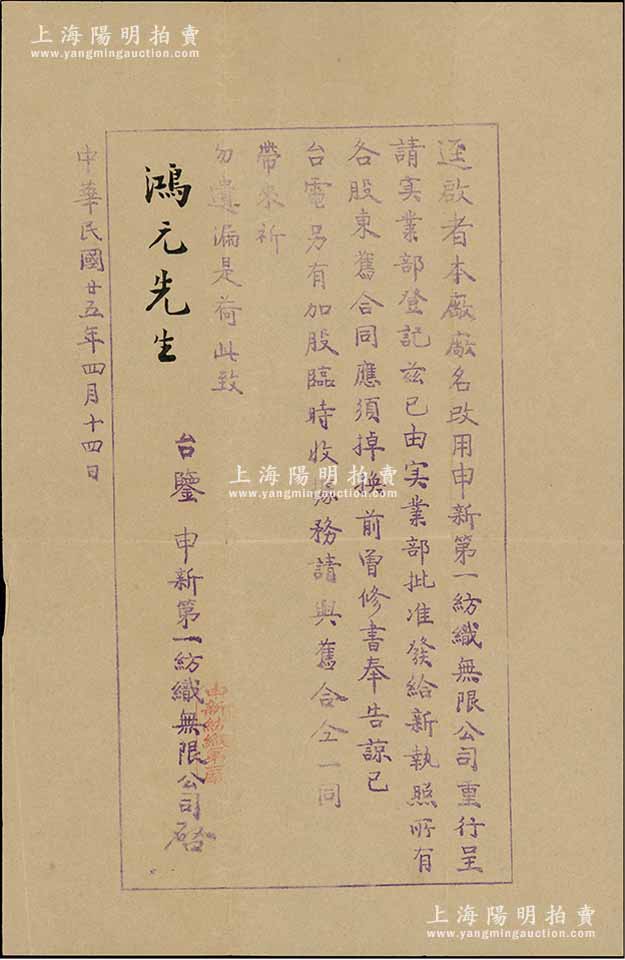 上海陽明拍賣
www.yangmingauction.com
逕啟者本廠廠名改用申新第一紡織無限公司重行呈
請实業部登記茲已由实業部批准發給新執照所有
各股東舊合同應須掉換前曾修書奉告諒已
台電另有加股臨時收據務請與舊合仝一同
帶來祈
勿遺漏是荷此致
鴻元先生
台鑒 申新第一紡織無限公司啟
申新紡織第一廠
中華民國廿五年四月十四日
上海陽明拍賣
www.yangmingauction.com
上海陽明拍賣
www.yangmingauction.com